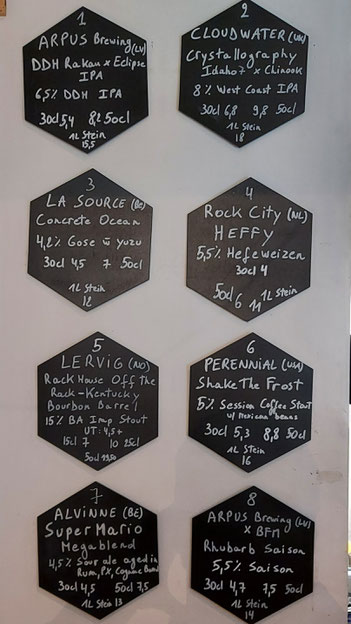 1
ARPUS Brewing (LV)
DDH Rakau x Eclipse
IPA
6,5% DDH IPA
30cl 5,4 8,2 50cl
1L Stein
15,5
2
CLOUDWATER (UK)
Crystallography
Idaho7 x Chinook
8% West Coast IPA
30cl 6,8 9,8 50cl
1L Stein
18
3
LA SOURCE (BE)
Concrete Ocean
4,2% Gose w yuzu
30cl 4,5 7 50cl
1L Stein
12
4
Rock City (NL)
HEFFY
5,5% Hefeweizen
30cl 4
50cl 6 1L Stein 11
5
LERVIG (NO)
Rack House Off the
Rack-Kentucky
Bourbon Barrel
15% BA Imp Stout
UT: 4,5+
15cl 7 10 25cl
50cl 19,50
6
PERENNIAL (USA)
Shake The Frost
5% Session Coffee Stout
w/ Mexicana beans
30cl 5,3 8,8 50cl
1L Stein
16
7
ALVINNE (BE)
Super Mario
Megablend
4,5% Sour ale aged in
Rum, PX, Cognac
30cl 4,5 50cl 7,5
1L Stein 13
8
ARPUS Brewing (LV)
x BFM
Rhubarb Saison
5,5% Saison
30cl 4,7 7,5 50cl
1L Stein
14